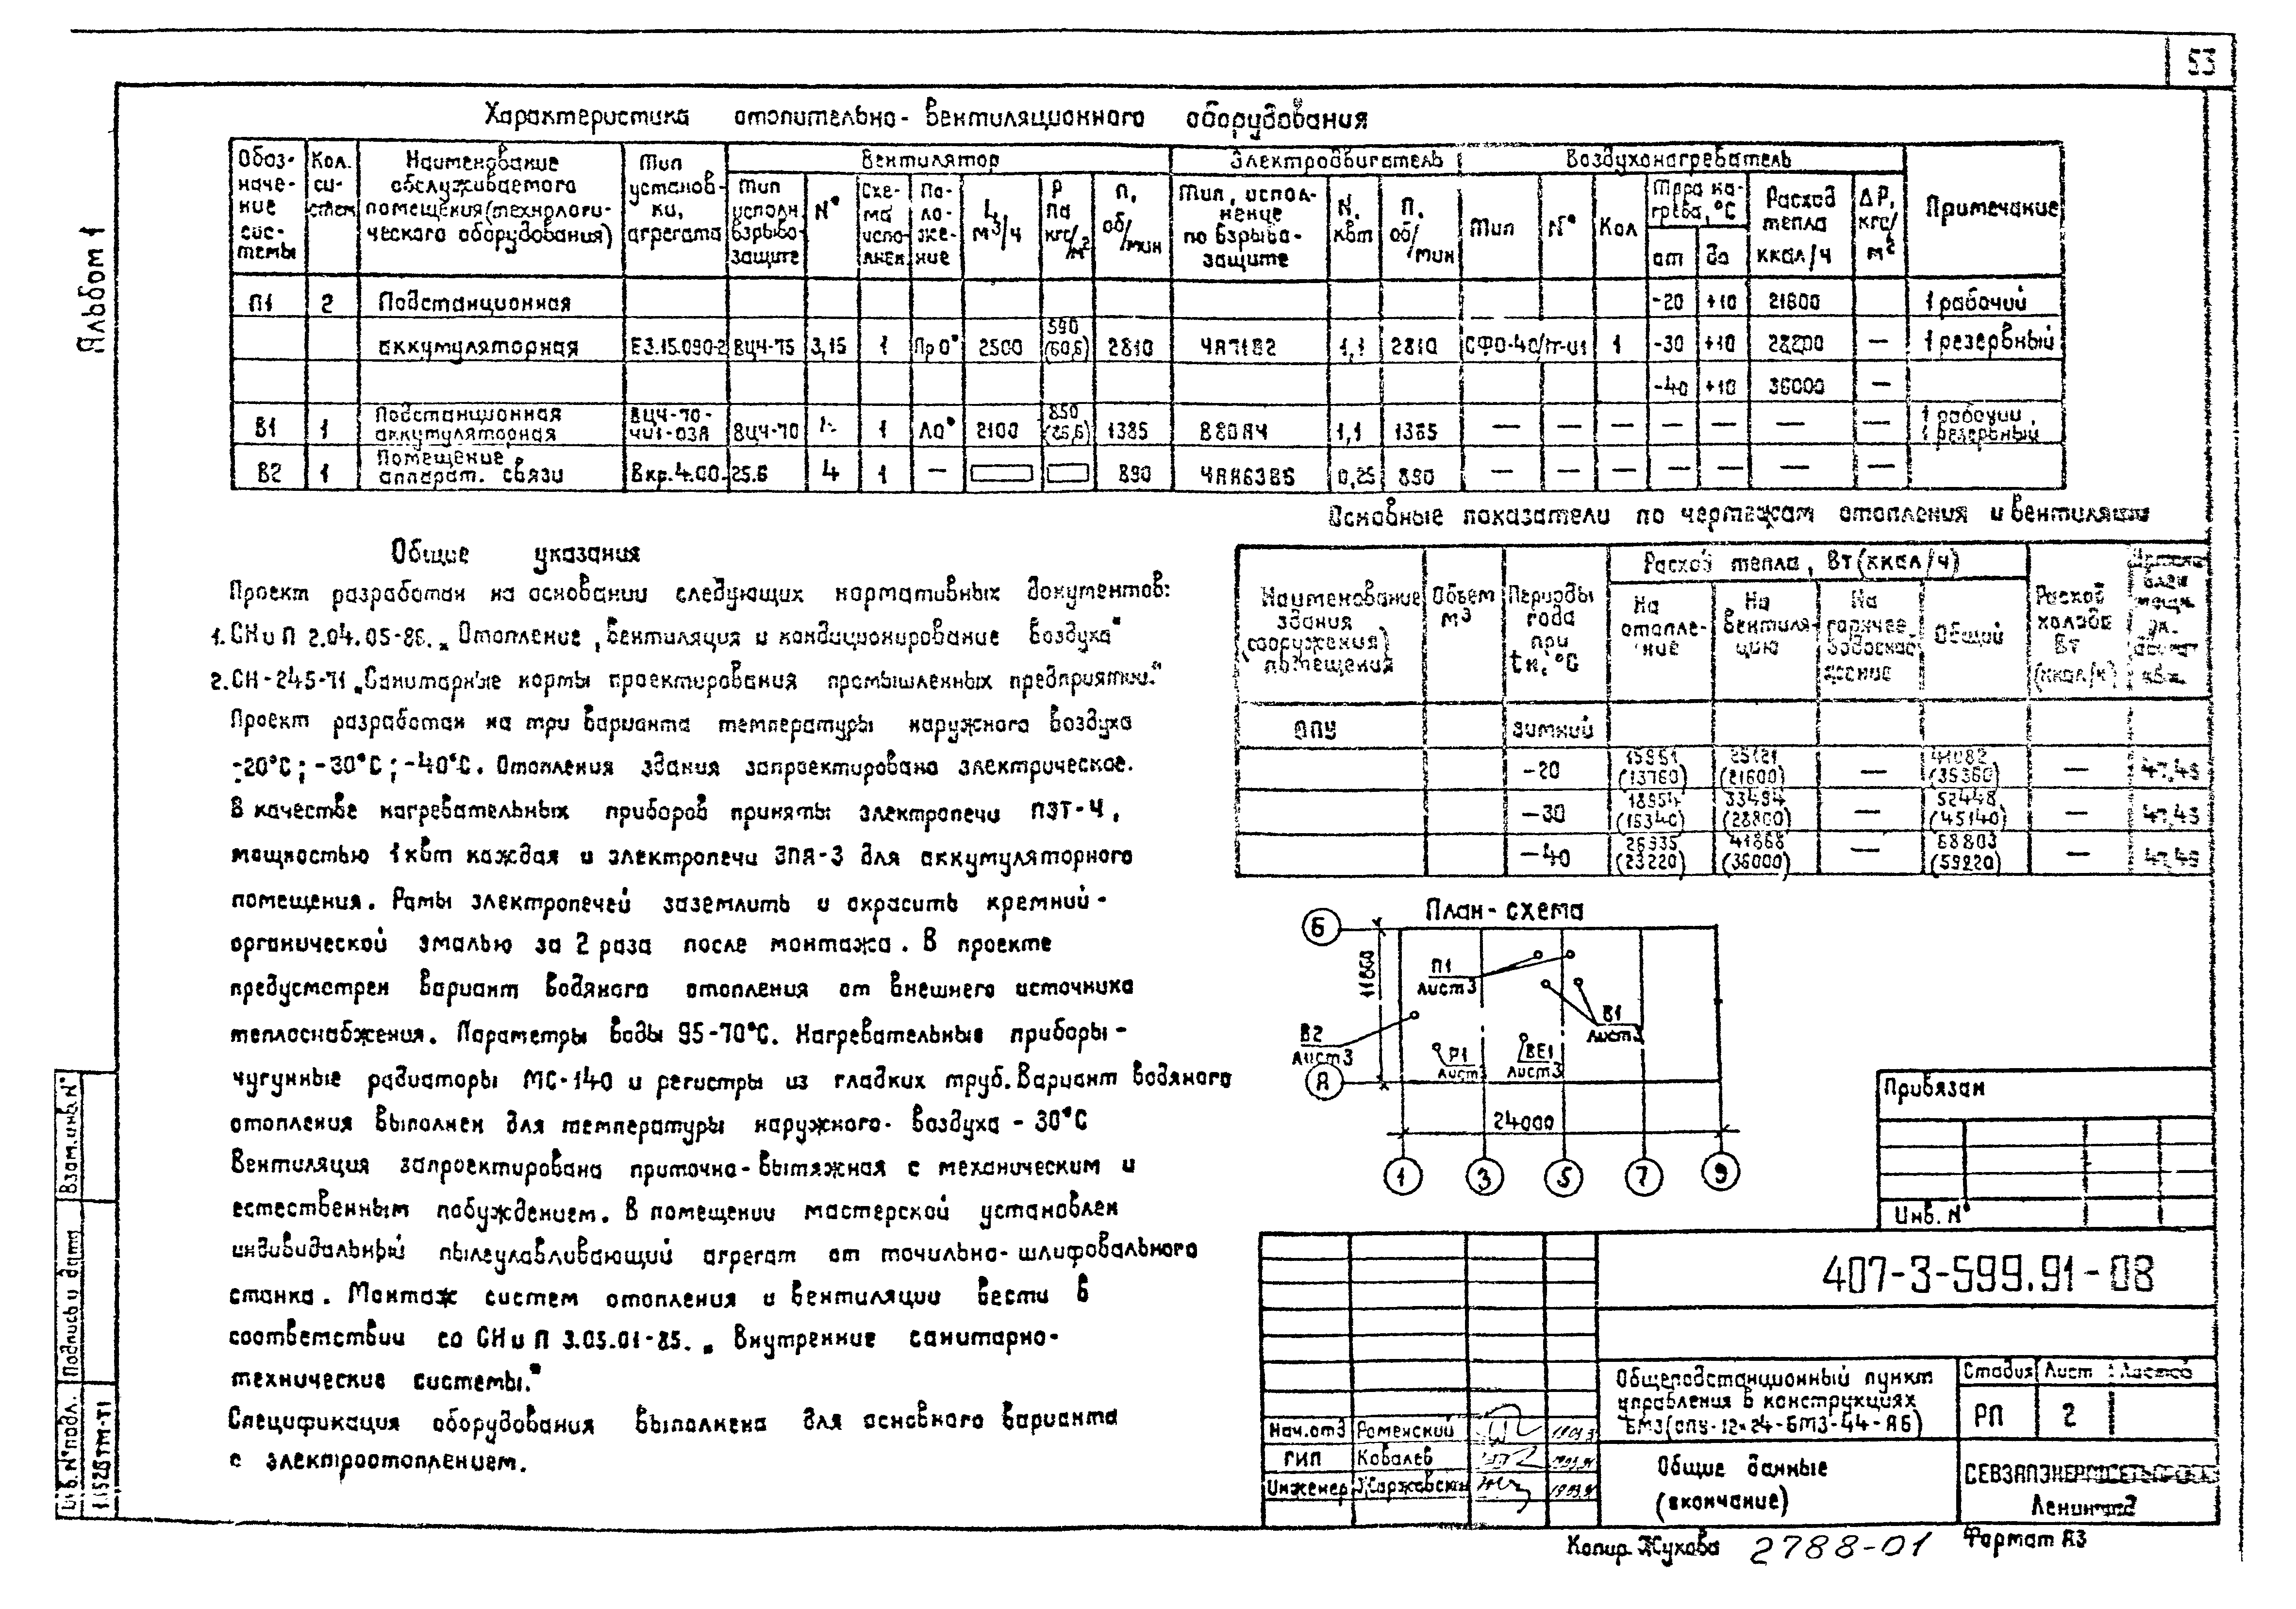 53
Альбом 1
Характеристика отопительно-вентиляционного оборудования
Обоз-
наче-
ние
сис-
темы
Кол.
си-
стем
Наименование
обслуживаемого
помещения (технологи-
ческого оборудования)
Тип
установ-
ки,
агрегата
Вентилятор
Тип
исполн.
взрыво-
защите
N°
Схе-
ма
испо-
лнен
По-
ло-
же-
ние
L,
м3/ч
Р
па
кгс/м2
п,
об/мин
Электродвигатель
Тип, испол-
нение
по взрыво-
защите
N,
квт
п,
об/мин
Воздухонагреватель
Тип
N°
Кол
Тпра на-
грева, °С
от
до
Расход
тепла
ккал/ч
ΔР,
кгс/
м2
Примечание
П1 2 Подстанционная -20 +10 21600 1 рабочий
аккумуляторная Е3.15.090-2 ВЦ4-75 3,15 1 Пр0° 2500 590 (60,6) 2810 4А71В2 1,1 2810 СФО-40/1т-01 1 -30 +10 28800 — 1 резервный
-40 +10 36000 —
В1 1 Подстанционная аккумуляторная ВЦ4-70-4И1-03А ВЦ4-70 1 Л0° 2100 850 1385 В80А4 1,1 1385 — — — — — — — 1 рабочий, 1 резервный
В2 1 Помещение аппарат. связи Вкр.4.00.25.6 4 1 — 890 4АА63В6 0,25 890 — — — — — — —
Общие указания
Проект разработан на основании следующих нормативных документов:
1. СНиП 2.04.05-86. „Отопление, вентиляция и кондиционирование воздуха"
2. СН-245-71 „Санитарные нормы проектирования промышленных предприятий."
Проект разработан на три варианта температуры наружного воздуха
-20°С; -30°С; -40°С. Отопления здания запроектировано электрическое.
В качестве нагревательных приборов приняты электропечи ПЭТ-4,
мощностью 1квт каждая и электропечи ЭПА-3 для аккумуляторного
помещения. Рамы электропечей заземлить и окрасить кремний-
органической эмалью за 2 раза после монтажа. В проекте
предусмотрен вариант водяного отопления от внешнего источника
теплоснабжения. Параметры воды 95-70°С. Нагревательные приборы-
чугунные радиаторы МС-140 и регистры из гладких труб. Вариант водяного
отопления выполнен для температуры наружного воздуха - 30°С
Вентиляция запроектирована приточно-вытяжная с механическим и
естественным побуждением. В помещении мастерской установлен
индивидальный пылеулавливающий агрегат от точильно-шлифовального
станка. Монтаж систем отопления и вентиляции вести в
соответствии со СНиП 3.05.01-85. „Внутренние санитарно-
технические системы."
Спецификация оборудования выполнена для основного варианта
с электроотоплением.
Основные показатели по чертежам отопления и вентиляции
Наименование
здания
(сооружения)
помещения
Объем
м3
Периоды
года
при
tн, °С
Расход тепла, Вт (ккал/ч)
На
отопле-
ние
На
вентиля-
цию
На
горячее
водоснаб
жение
Общий
Расход
холода
Вт
(ккал/ч)
ОПУ зимний
-20 15961 (13760) 25121 (21600) — 41082 (35360) — 47,48
-30 18954 (16340) 33494 (28800) — 52448 (45140) —
-40 26935 (23220) 41868 (36000) — 68803 (59220) —
План-схема
Б
А
11860
24000
1 3 5 7 9
П1
Лист3
В1
Лист3
В2
Лист3
Р1
Лист
ВЕ1
Лист3
Привязан
Инв. N°
407-3-599.91-08
Общеподстанционный пункт
управления в конструкциях
БМЗ (ОПУ-12×24-БМЗ-44-АБ)
Стадия Лист Листов
РП 2
Общие данные
(окончание)
СЕВЗАПЭНЕРГОСЕТЬПРОЕКТ
Ленинград
Нач.отд Роменский
ГИП Ковалев
Инженер
Копир. Жукова 2788-01 Формат А3
Взам.инв.N°
Подпись и дата
Инв.N°подл.
11528тм-т1